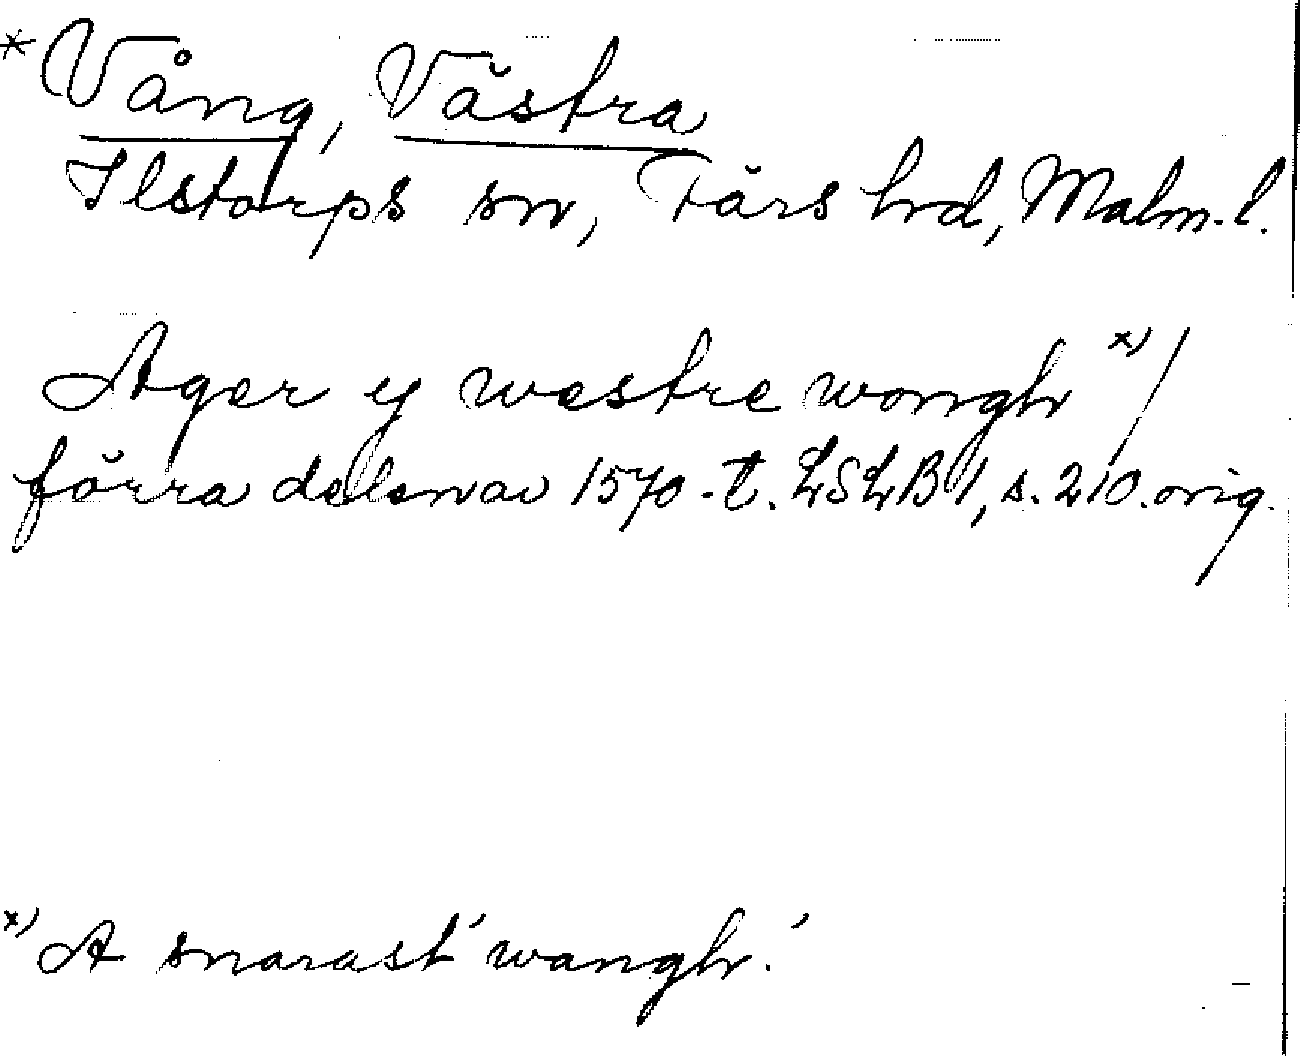 * Vång, Västra
Ilstorps sn, Färs hrd, Malm. l.
Ager y westre wongh x) /
förra delen av 1570-t. LSLB 1, s. 210. orig.
x) A snarast 'wangh.'